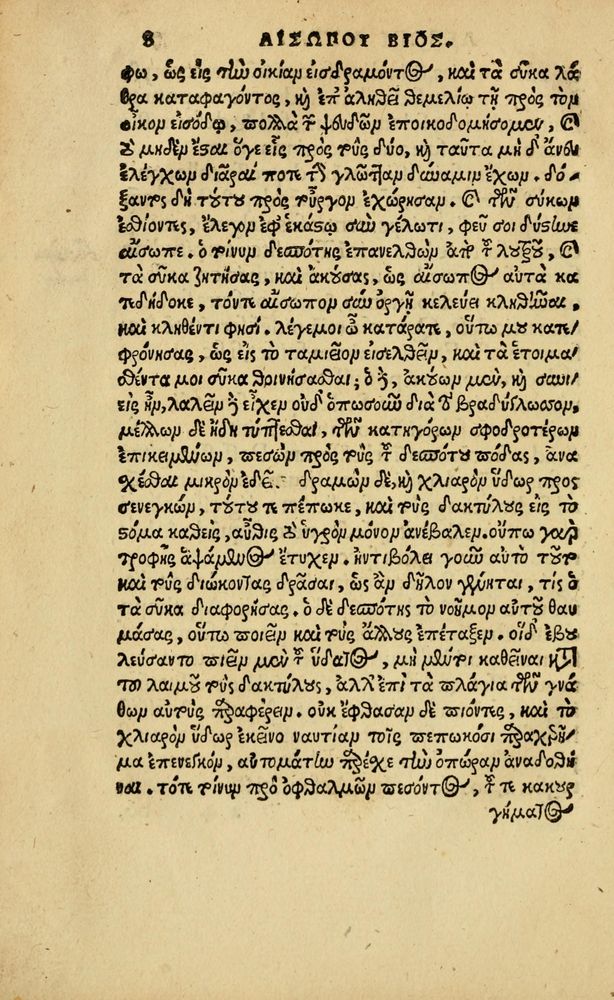 8 ΑΙΣΩΠΟΥ ΒΙΟΣ.
φω, ὡς εἰς τὴν οἰκίαν εἰσδραμόντος, καὶ τὰ σῦκα λά
θρα καταφαγόντος, κ̀ ἐπ' ἀληθεῖ θεμελίῳ τῇ πρὸς τὸν
οἶκον εἰσόδῳ, πολλὰ τ̃ ψευδῶν ἐποικοδομήσομεν, καὶ
οὐ μηδὲν ἔσαι ὅγε εἷς πρὸς τοὺς δύο, κ̀ ταῦτα μηδ' ἄνευ
ἐλέγχων διᾶραί ποτε τὴν γλῶτταν δύναμιν ἔχων. δό-
ξαν δὴ τούτου πρὸς τοὖργον ἐχώρησαν. καὶ τῶν σύκων
ἐσθίοντες, ἔλεγον ἐφ' ἑκάστῳ σὺν γέλωτι, φεῦ σοι δύστηνε
αἴσωπε. ὁ τοίνυν δεσπότης ἐπανελθὼν ἀπὸ τ̃ λουτροῦ, καὶ
τὰ σῦκα ζητήσας, καὶ ἀκούσας, ὡς αἴσωπος αὐτὰ κα
τεδήδοκε, τόντε αἴσωπον σὺν ὀργῇ κελεύει κληθῆναι,
καὶ κληθέντι φησί. λέγε μοι ὦ κατάρατε, οὕτω μου κατε/
φρόνησας, ὡς εἰς τὸ ταμιεῖον εἰσελθεῖν, καὶ τὰ ἑτοιμα/
σθέντα μοι σῦκα θοινήσασθαι; ὁ δὲ, ἀκούων μὲν, κ̀ συνι/
εὶς ἦν, λαλεῖν δὲ εἶχεν οὐδ' ὁπωσοῦν διὰ τὸ βραδύγλωσσον,
μέλλων δὲ ἤδη τύπτεσθαι, τῶν κατηγόρων σφοδροτέρων
ἐπικειμένων, πεσὼν πρὸς τοὺς τ̃ δεσπότου πόδας, ἀνα
χέσθαι μικρὸν ἐδεῖ. δραμὼν δὲ, κ̀ χλιαρὸν ὕδωρ προς
ενεγκὼν, τούτου τε πέπωκε, καὶ τοὺς δακτύλους εἰς τὸ
στόμα καθεὶς, αὖθις τὸ ὑγρὸν μόνον ἀνέβαλεν. οὔπω γὰρ
τροφῆς ἁψάμενος ἔτυχεν. ἠντιβόλει γοῦν αὐτὸ τοῦτο
καὶ τοὺς διώκοντας δρᾶσαι, ὡς ἂν δῆλον γένηται, τίς ὁ
τὰ σῦκα διαφορήσας. ὁ δὲ δεσπότης τὸ νοῦνον αὐτοῦ θαυ
μάσας, οὕτω ποιεῖν καὶ τοὺς ἄλλους ἐπέταξεν. οἱ δ' ἐβου
λεύσαντο πιεῖν μὲν τ̃ ὕδατος, μὴ μέντοι καθεῖναι κατὰ
τοῦ λαιμοῦ τοὺς δακτύλους, ἀλλ' ἐπὶ τὰ πλάγια τῶν γνά
θων αὐτοὺς παραφέρειν. οὐκ ἔφθασαν δὲ πιόντες, καὶ τὸ
χλιαρὸν ὕδωρ ἐκεῖνο ναυτίαν τοῖς πεπωκόσι παραχρῆ/
μα ἐπενεγκὸν, αὐτομάτως παρεῖχε τὴν ὀπώραν ἀναδοθῆ
ναι. τότε τοίνυν πρὸ ὀφθαλμῶν πεσόντος, τ̃ τε κακουρ
γήματος